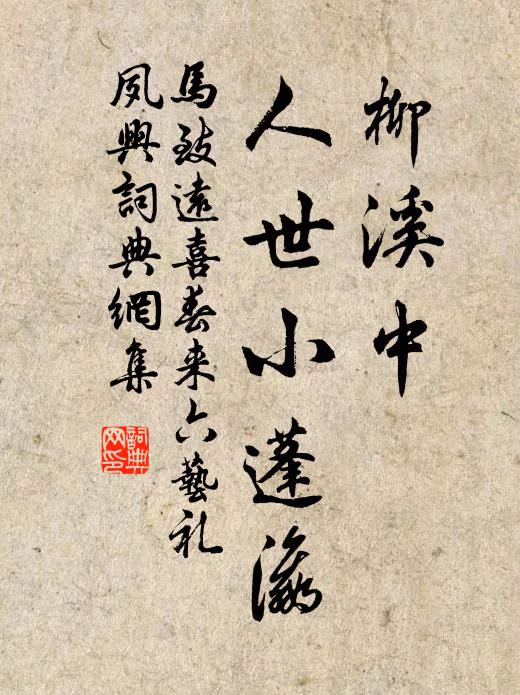 柳溪中
人世小蓬瀛
馬致遠喜春来六藝礼
夙興詞典網集
詞典網印